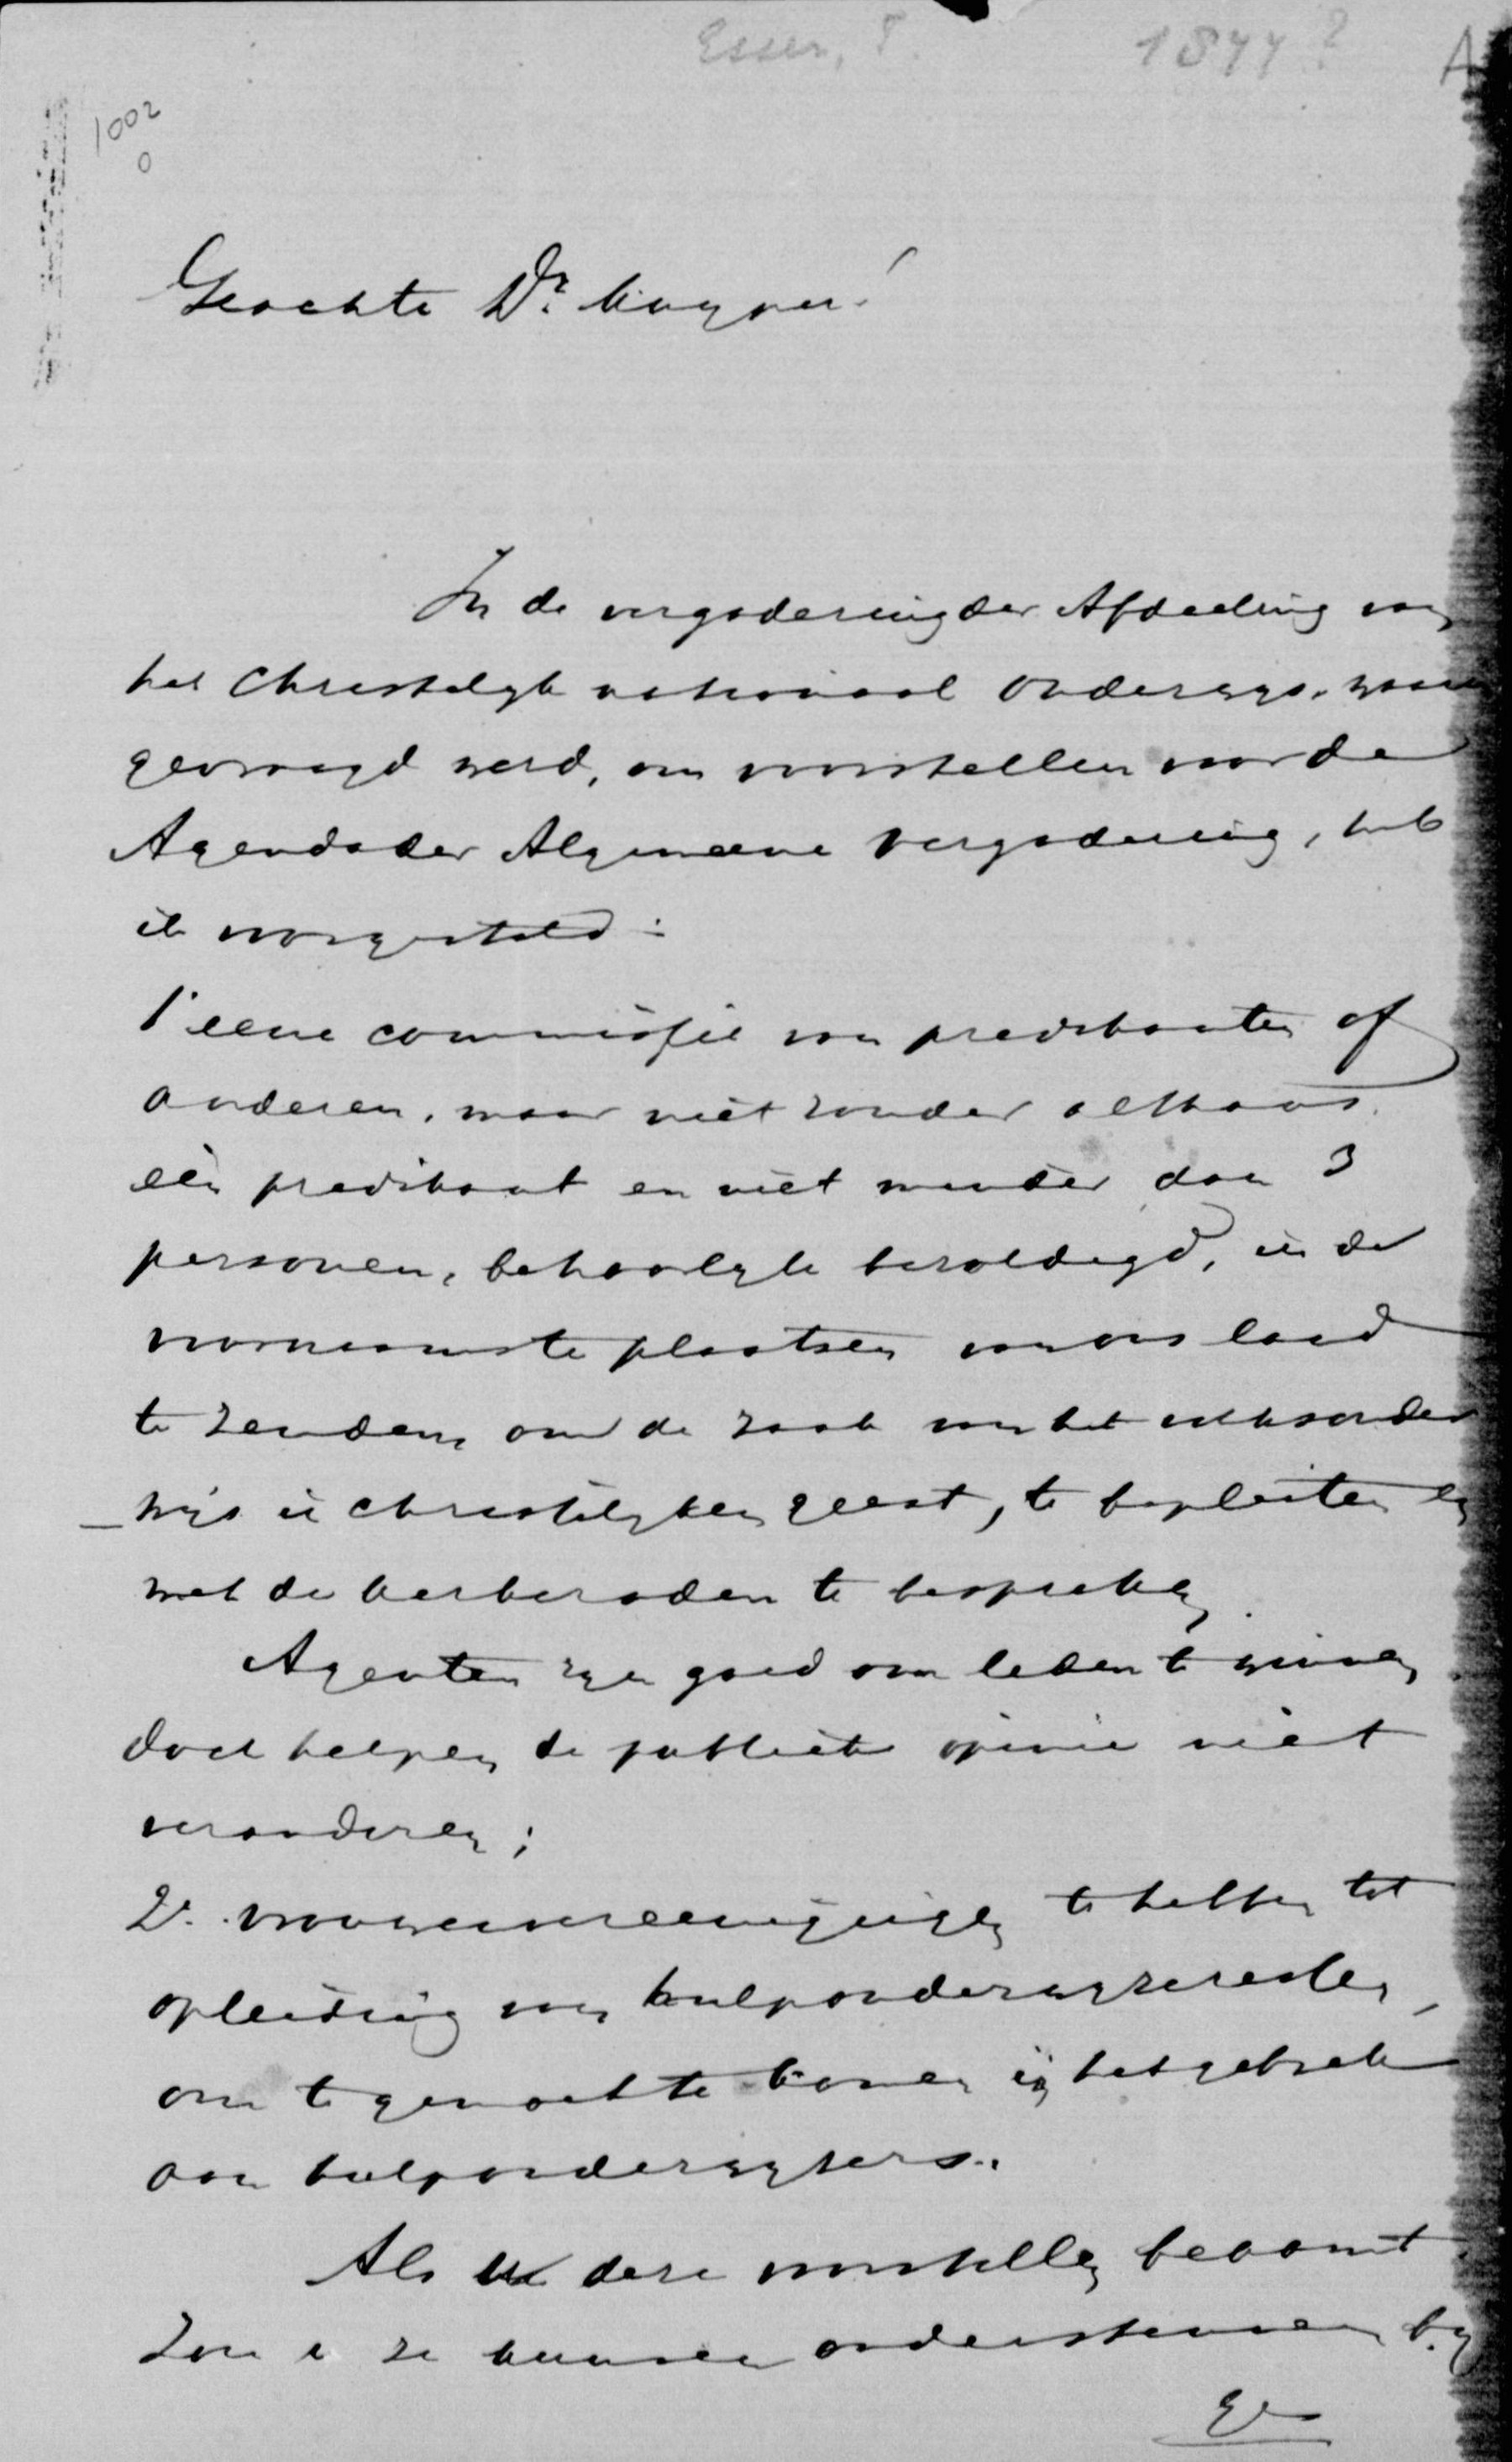 Esser, I. 1877?
1002
0
Geachte Dr. Kuyper!
In de vergadering der Afdeeling van
het Christelyk nationaal Onderwys, waarin
gevraagd werd, om voorstellen voor de
Agenda der Algemeene Vergadering, heb
ik voorgesteld:
1° eene commissie van predikanten of
anderen, maar niet zonder althans
eén predikant en niet minder dan 3
personen, behoorlyk bezoldigd, in de
voornaamste plaatsen van ons land
te zenden, om de zaak van het volksonder
-wys in christelyken geest, te bepleiten en
met de kerkeraden te bespreken.
Agenten zyn goed om leden te winnen
doch helpen de publieke opinie niet
veranderen;
2°. vrouwenvereenigingen te hebben tot
opleiding van hulponderwyzeressen,
om te gemoet te komen in het gebrek
aan hulponderwyzers.
Als U deze voorstellen beaamt
zou u ze kunnen ondersteunen by